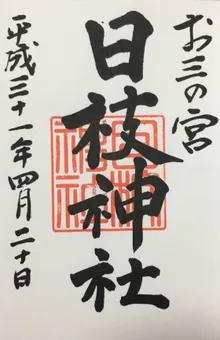 お三の宮
日枝神社
平成三十一年四月二十日